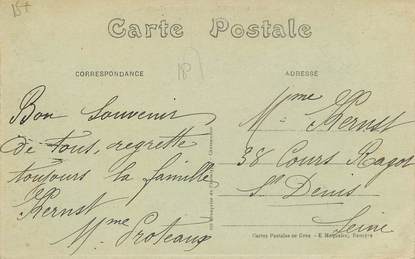 Carte Postale
CORRESPONDANCE
ADRESSE
Bon Souvenir
de tous, regrette
toujours la famille
Kernst
Mme Proteaux
Mme Kernst
38 Cours Ragot
St Denis
Seine
Cartes Postales en Gros - E.